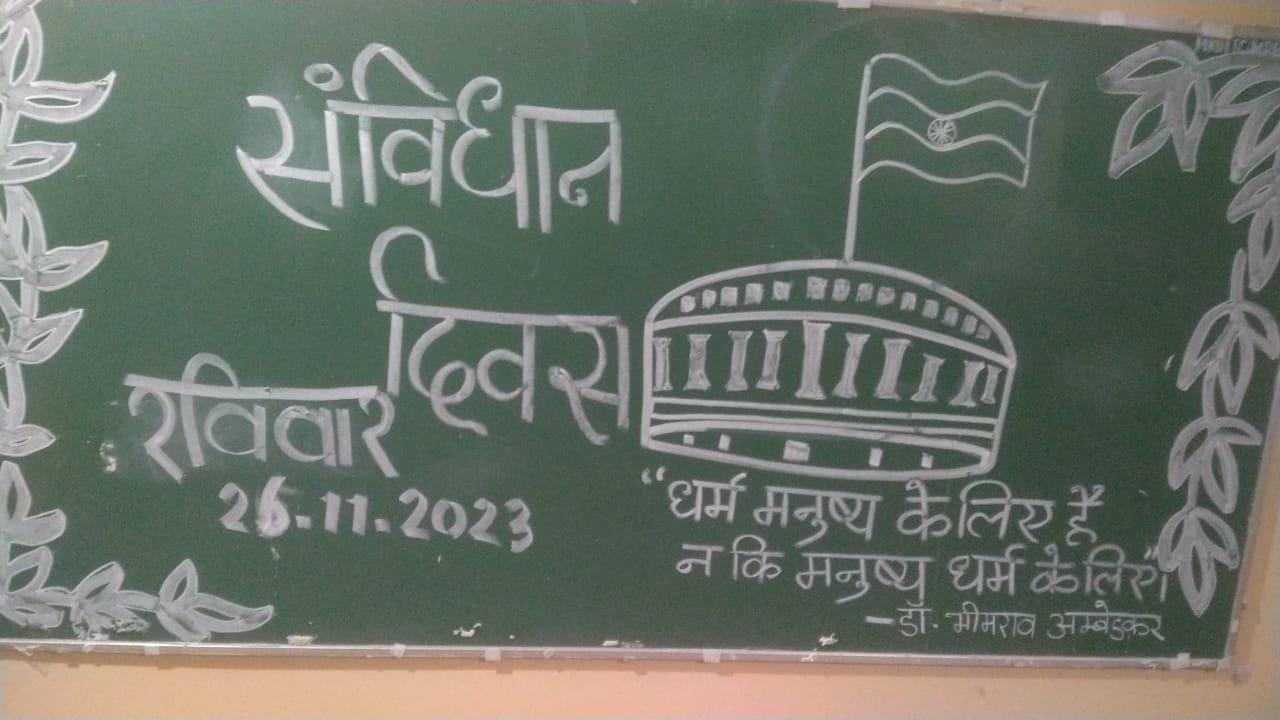 संविधान
दिवस
रविवार
26.11.2023
“धर्म मनुष्य के लिए है
न कि मनुष्य धर्म के लिए।”
— डॉ. भीमराव अम्बेडकर